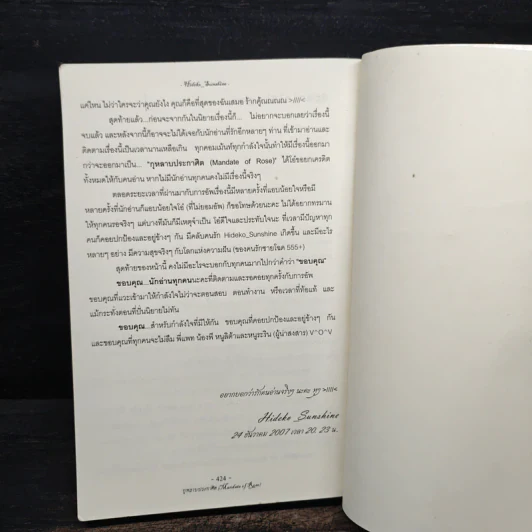 - Hideko_Sunshine -
แค่ไหน ไม่ว่าใครจะว่าคุณยังไง คุณก็คือที่สุดของฉันเสมอ ร้ากคู้ณณณณ >////<
สุดท้ายแล้ว...ก่อนจะจากกันในนิยายเรื่องนี้ก็... ไม่อยากจะบอกเลยว่าเรื่องนี้
จบแล้ว และหลังจากนี้ก็อาจจะไม่ได้เจอกับนักอ่านที่รักอีกหลายๆ ท่าน ที่เข้ามาอ่านและ
ติดตามเรื่องนี้เป็นเวลานานเหลือเกิน ทุกคอมเม้นท์ทุกกำลังใจนั้นทำให้มีเรื่องนี้ออกมา
กว่าจะออกมาเป็น... "กุหลาบประกาศิต (Mandate of Rose)" ได้โอ๋ขอยกเครดิต
ทั้งหมดให้กับคนอ่าน หากไม่มีนักอ่านทุกคนคงไม่มีเรื่องนี้จริงๆ
ตลอดระยะเวลาที่ผ่านมากับการอัพเรื่องนี้มีหลายครั้งที่แอบน้อยใจหรือมี
หลายครั้งที่นักอ่านก็แอบน้อยใจโอ๋ (ที่ไม่ยอมอัพ) ก็ขอโทษด้วยนะคะ ไม่ได้อยากทรมาน
ให้ทุกคนรอจริงๆ แต่บางทีมันก็มีเหตุจำเป็น โอ๋ดีใจและประทับใจนะ ที่เวลามีปัญหาทุก
คนก็คอยปกป้องและอยู่ข้างๆ กัน มีคลับคนรัก Hideko_Sunshine เกิดขึ้น และมีอะไร
หลายๆ อย่าง มีความสุขจริงๆ กับโลกแห่งความฝัน (ของคนรักชายโฉด 555+)
สุดท้ายของหน้านี้ คงไม่มีอะไรจะบอกกับทุกคนมากไปกว่าคำว่า "ขอบคุณ"
ขอบคุณ...นักอ่านทุกคนนะคะที่ติดตามและรอคอยทุกครั้งกับการอัพ
ขอบคุณที่แวะเข้ามาให้กำลังใจไม่ว่าจะตอนสอบ ตอนทำงาน หรือเวลาที่ท้อแท้ และ
แม้กระทั่งตอนที่ปั่นนิยายไม่ทัน
ขอบคุณ...สำหรับกำลังใจที่มีให้กัน ขอบคุณที่คอยปกป้องและอยู่ข้างๆ กัน
และขอบคุณที่ทุกคนจะไม่ลืม พี่แพท น้องพี หนูลิต้าและหนูระริน (ผู้น่าสงสาร) V^O^V
อยากบอกว่ารักคนอ่านจริงๆ นะคะ ทุ >////<
Hideko_Sunshine
24 ธันวาคม 2007 เวลา 20.23 น.
- 424 -
กุหลาบประกาศิต Mandate of Rose